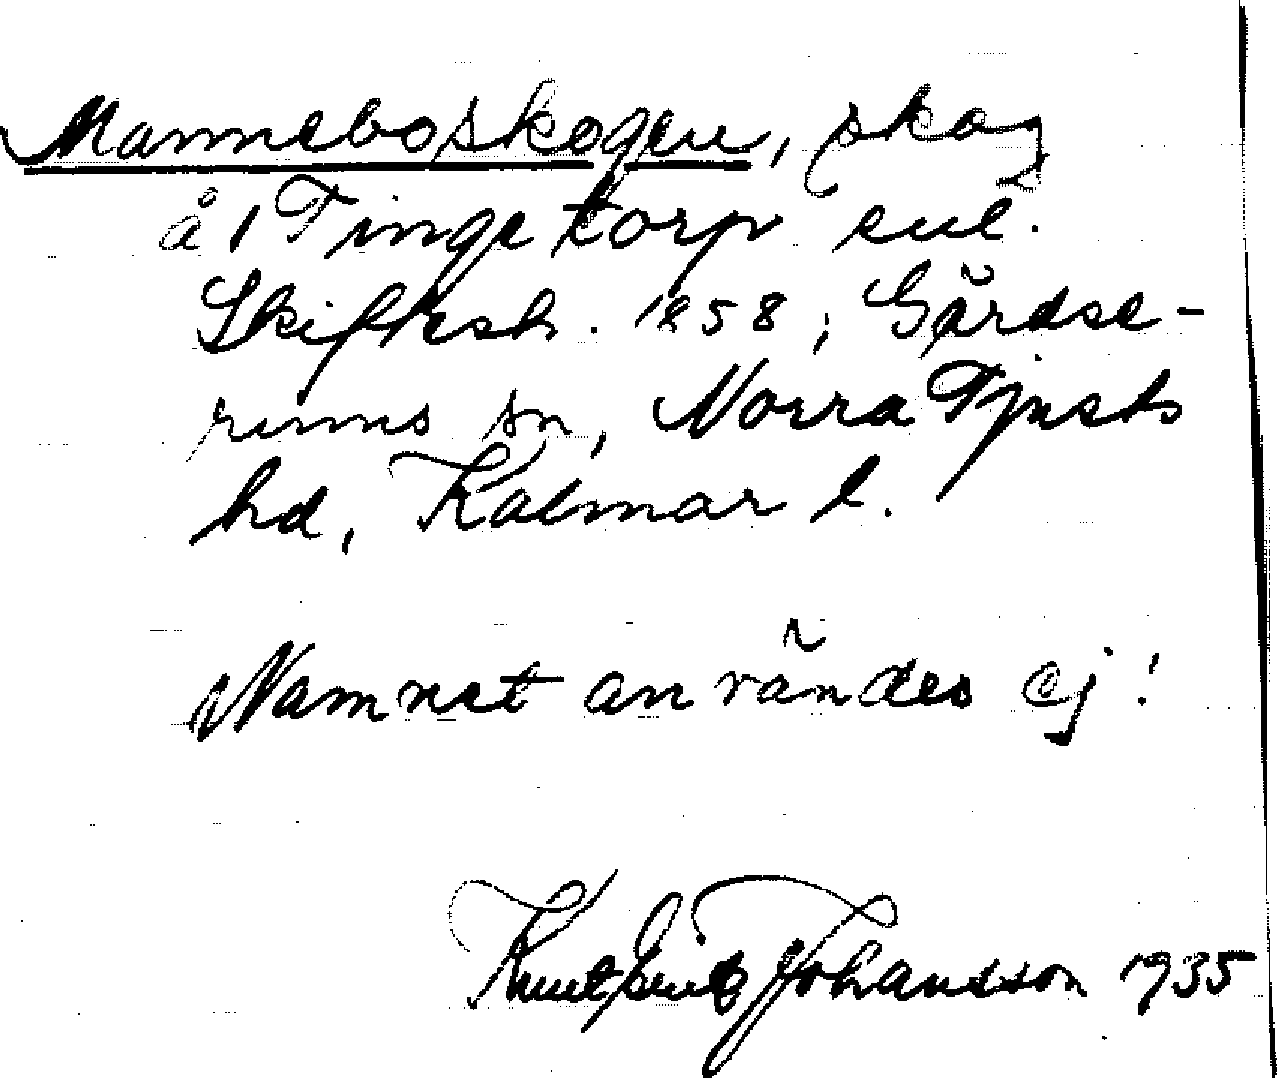 Manneboskogen, skog
å 1 Tingetorp enl.
Skiftesh. 1858, Gärdse-
rums sn, Norra Tjusts
hd, Kalmar l.
Namnet användes ej!
Knut Johansson 1935